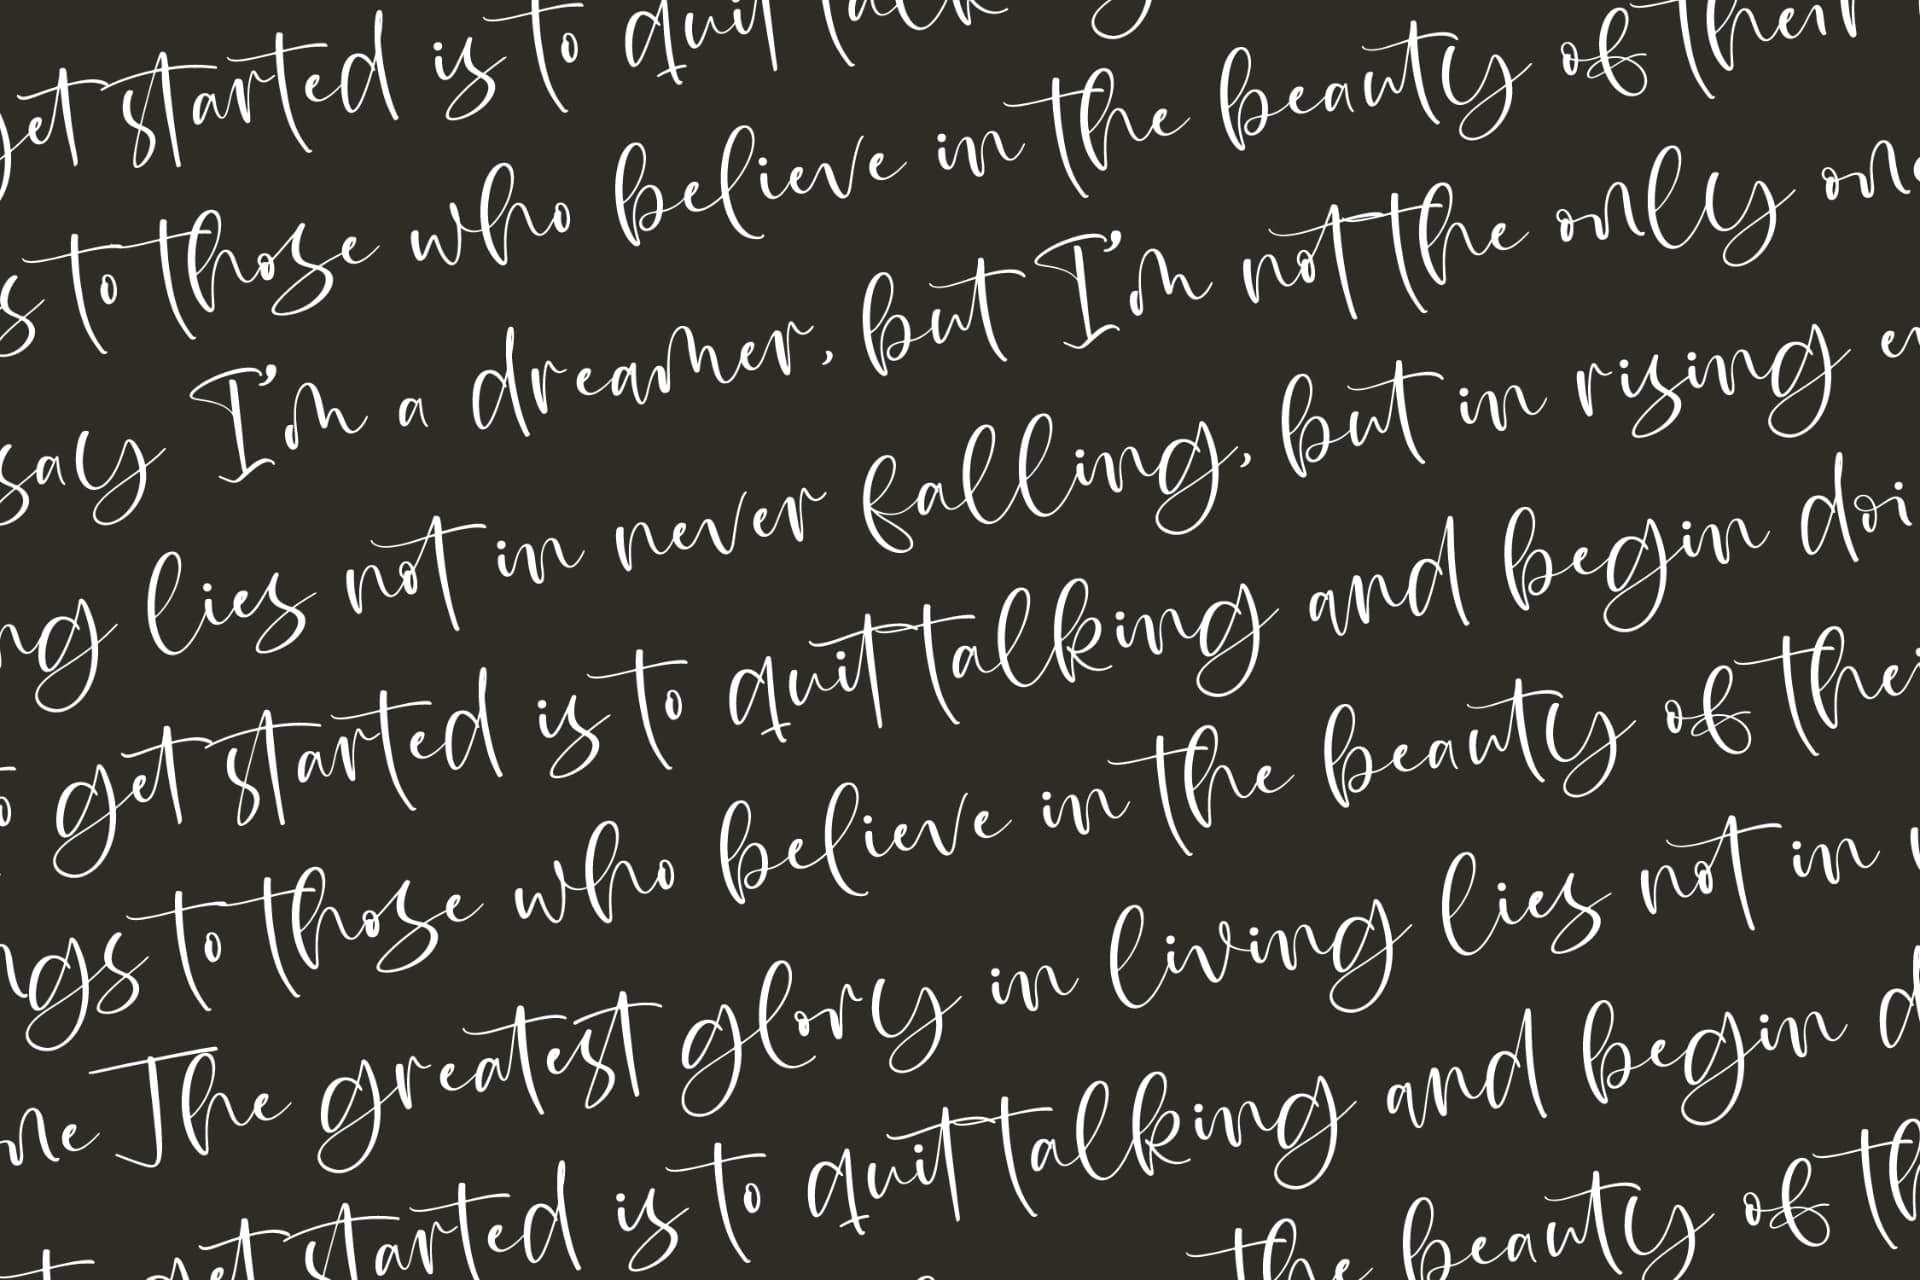 get started is to quit talk
s to those who believe in the beauty of their
say I'm a dreamer, but I'm not the only one
ng lies not in never falling, but in rising ev
o get started is to quit talking and begin doi
ngs to those who believe in the beauty of thei
me The greatest glory in living lies not in
t get started is to quit talking and begin d
the beauty of th